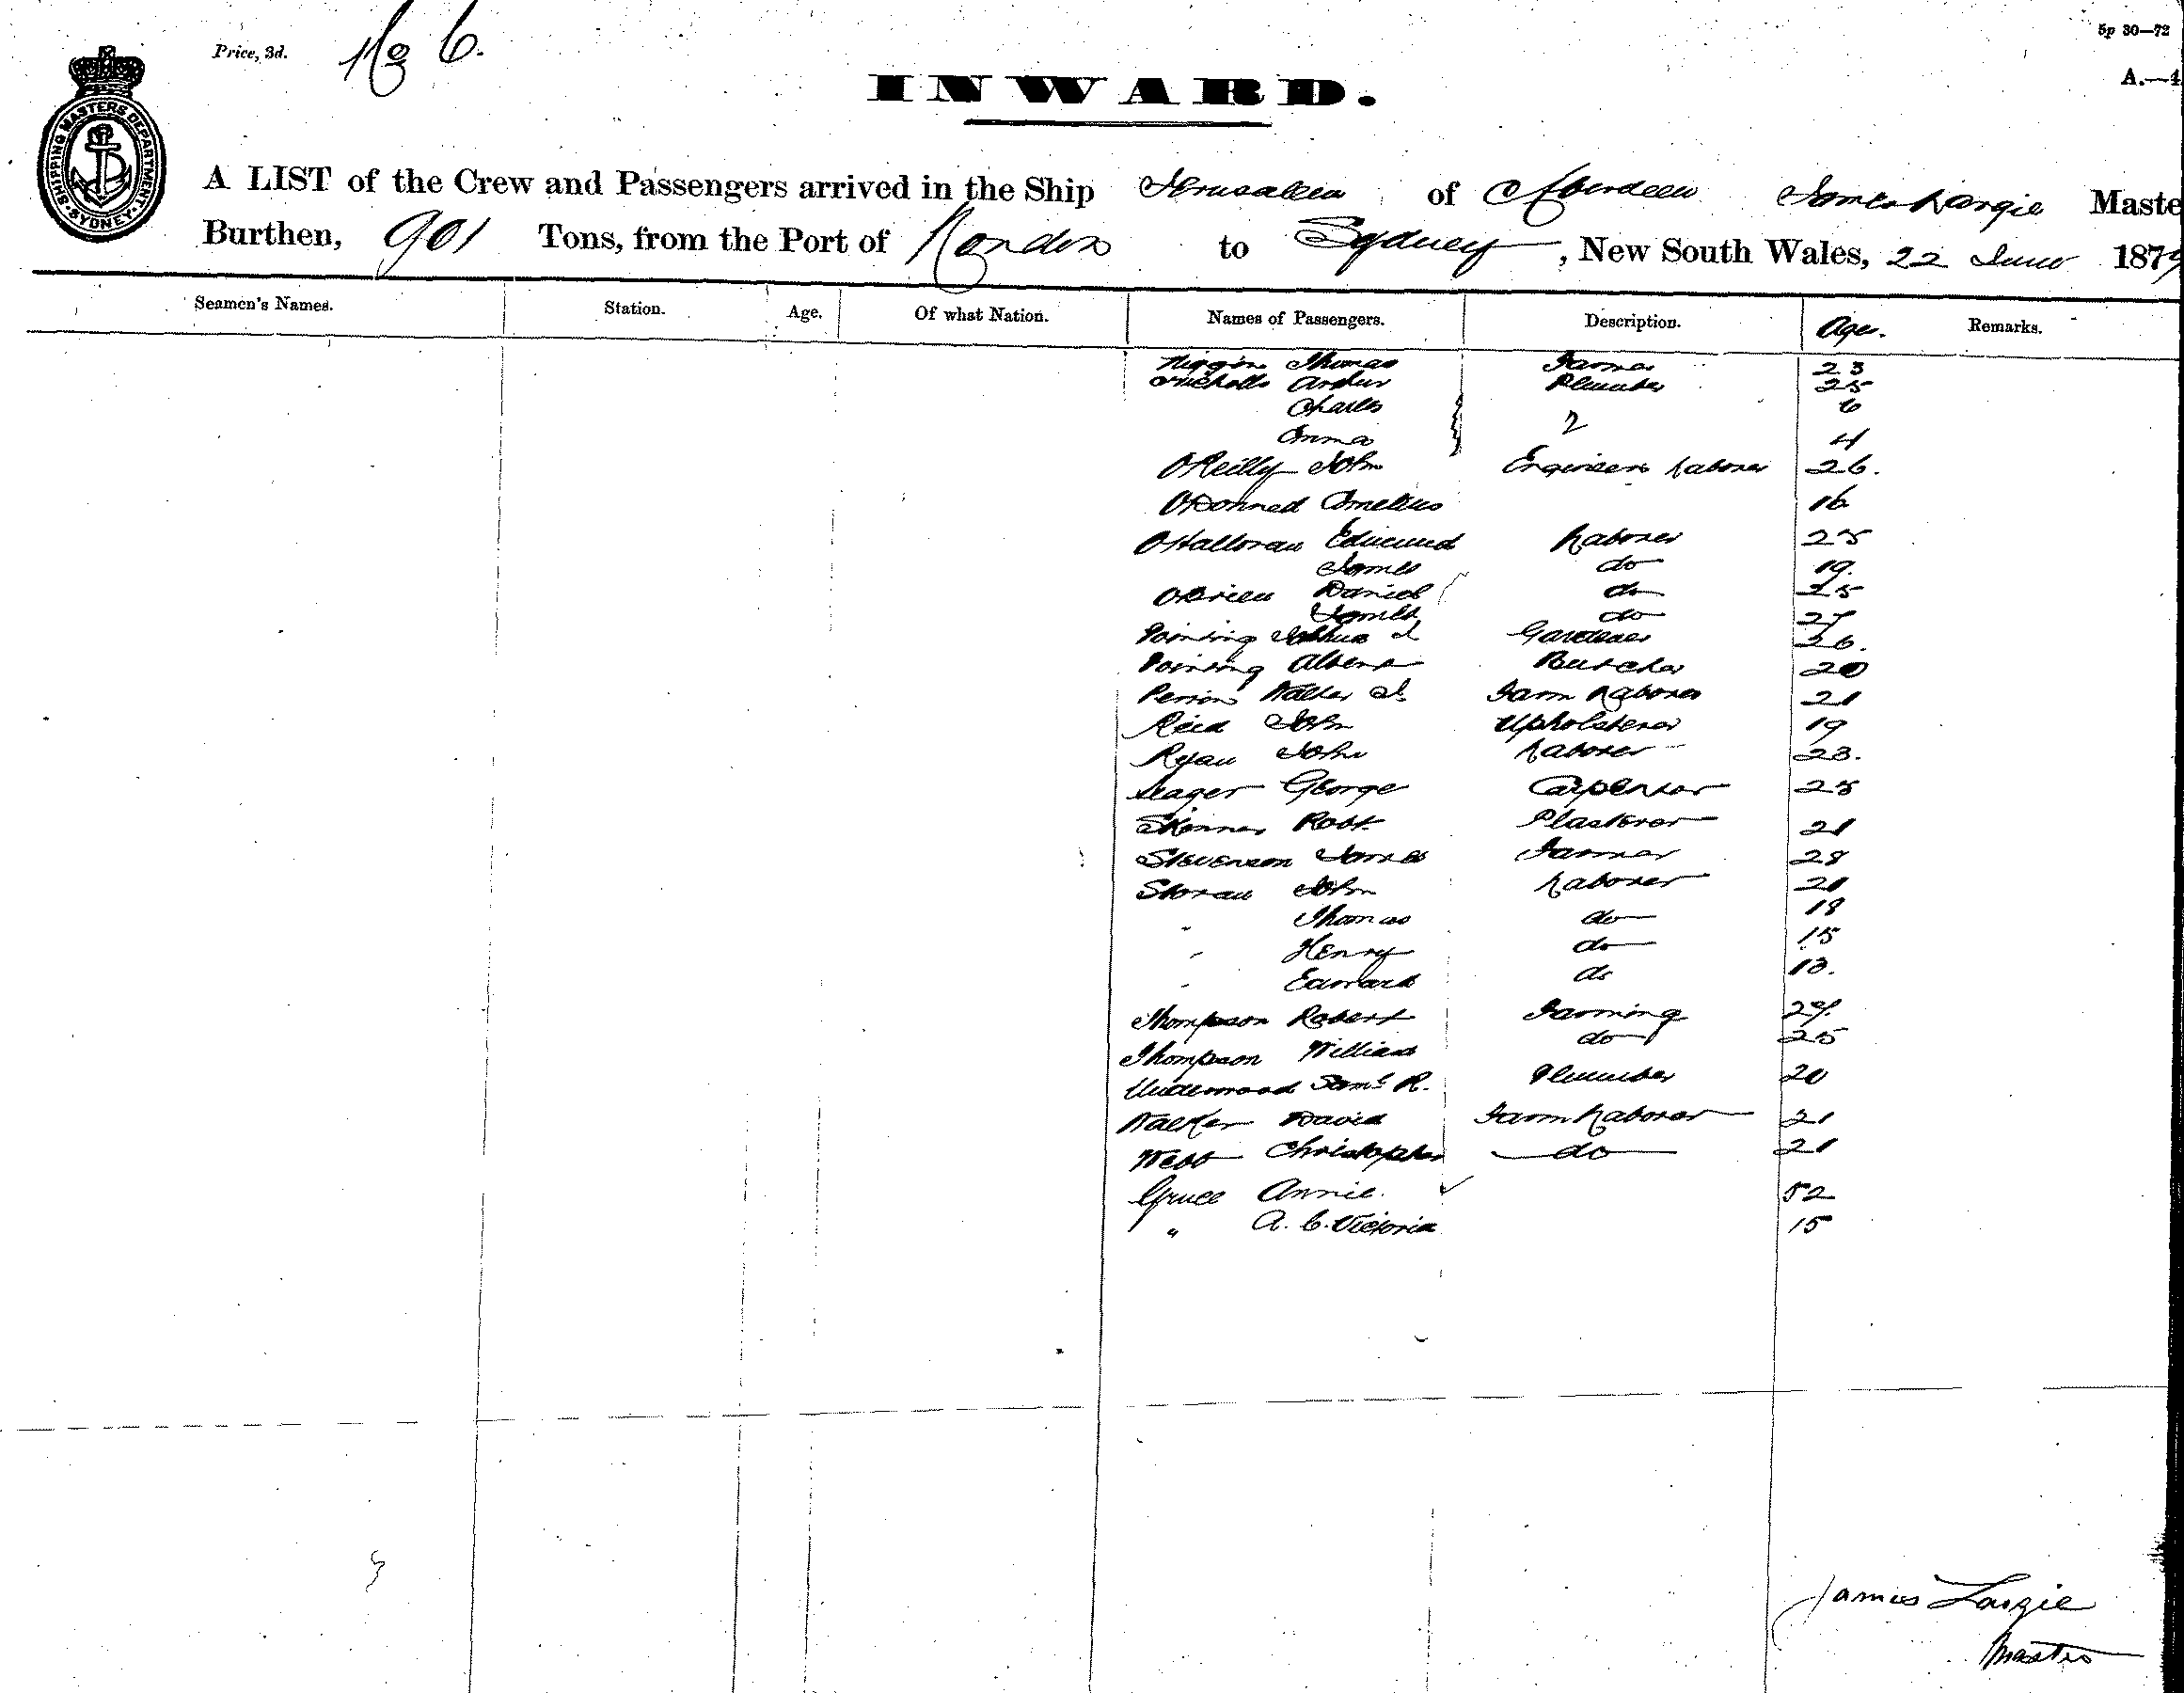 Price, 3d.
No 6.
5p 30—72
A.—4
INWARD.
SHIPPING MASTERS DEPARTMENT · SYDNEY ·
A LIST of the Crew and Passengers arrived in the Ship Jerusalem of Aberdeen James Largie Maste
Burthen, 901 Tons, from the Port of London to Sydney, New South Wales, 22 June 1879
Seamen's Names. Station. Age. Of what Nation. Names of Passengers. Description. Age. Remarks.
Thomas Farmer 23
Nicholls Arthur Plumber 25
Charles 6
Anna 4
O'Reilly John Engineers Laborer 26.
O'Donnel Cornelius 16
O'Halloran Edmund Laborer 25
James do 19.
O'Brien Daniel do 25
James do 27
Pointing Joshua J Gardener 26.
Pointing Albert Butcher 20
Walter J. Farm Laborer 21
Reid John Upholsterer 19
Ryan John Laborer 23.
Seager George Carpenter 25
Skinner Robt. Plasterer 21
Stevenson James Farmer 28
Storan John Laborer 21
" Thomas do 18
" Henry do 15
" Edward do 13.
Thompson Robert Farming 29.
Thompson William do 25
Underwood Saml R. Plumber 20
Walker David Farm Laborer 21
Webb Christopher do 21
Annie. 52
" A. C. Victoria 15
James Largie
Master